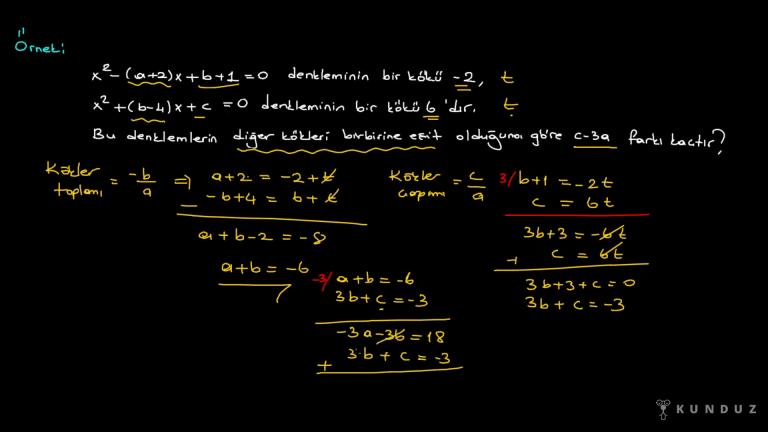 Örnek:
x² - (a+2)x + b+1 = 0 denkleminin bir kökü -2, t
x² + (b-4)x + c = 0 denkleminin bir kökü 6 'dır. t
Bu denklemlerin diğer kökleri birbirine eşit olduğuna göre c-3a farkı kaçtır?
Kökler toplamı = -b/a ⇒ a+2 = -2+t
- -b+4 = 6+t
a+b-2 = -8
a+b = -6
Kökler çarpımı = c/a 3/ b+1 = -2t
c = 6t
3b+3 = -6t
+ c = 6t
3b+3+c = 0
3b+c = -3
-3/ a+b = -6
3b+c = -3
-3a-3b = 18
+ 3b+c = -3
KUNDUZ